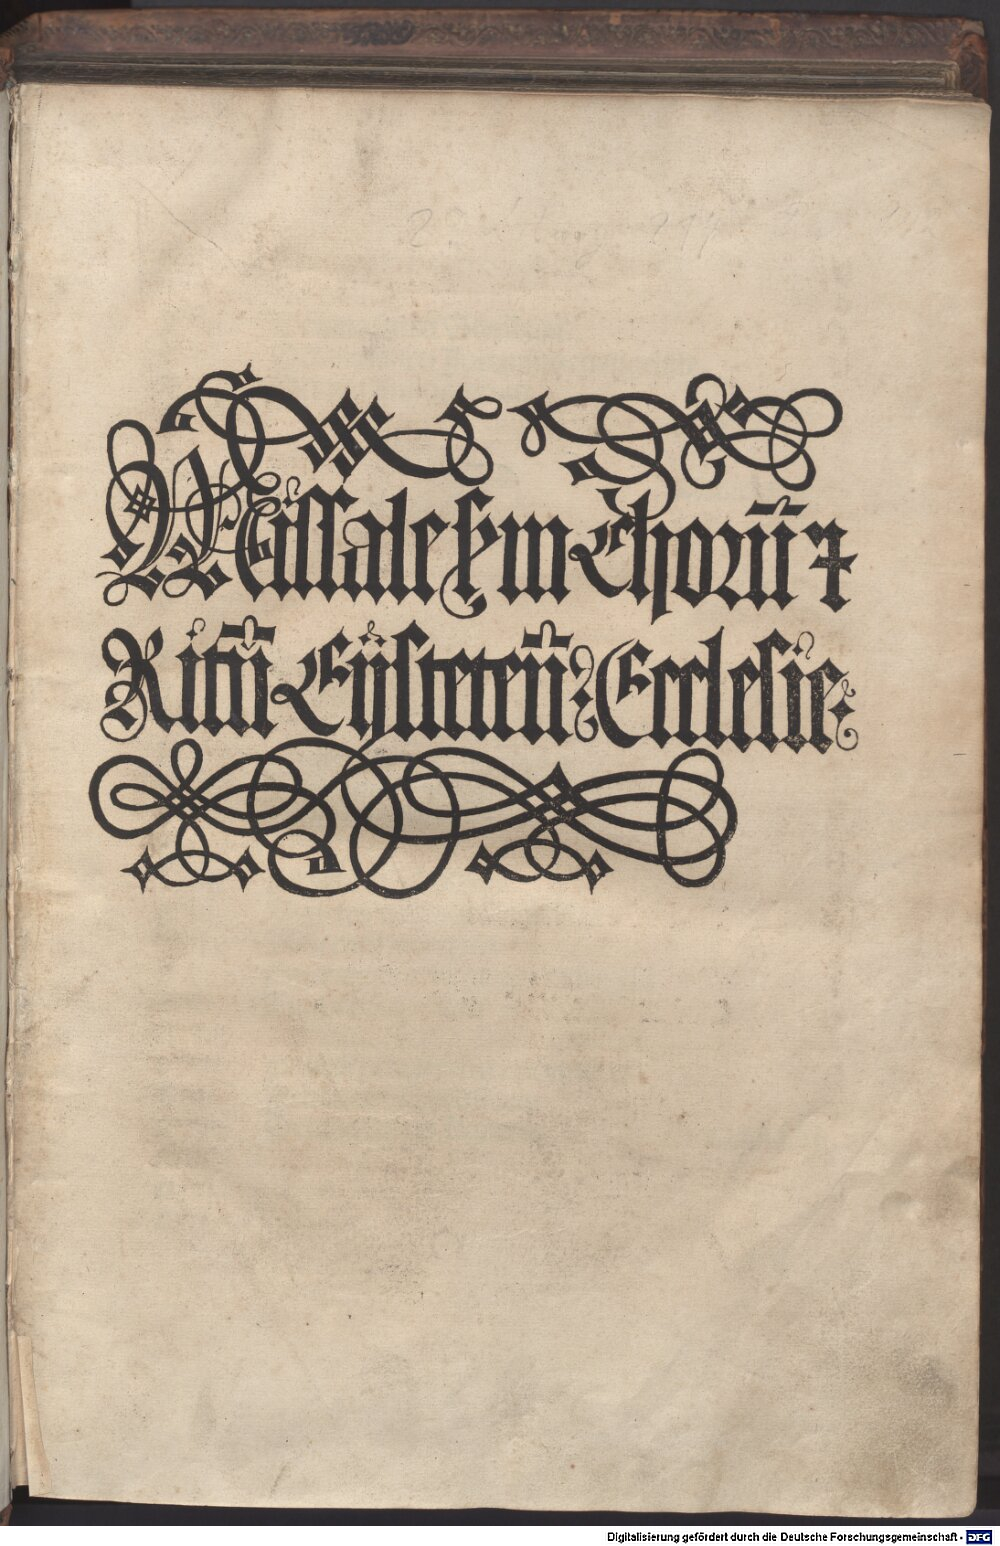 Missale ſm Chorū ⁊
Ritū Eyſteteñ Eccleſie
Digitalisierung gefördert durch die Deutsche Forschungsgemeinschaft - DFG